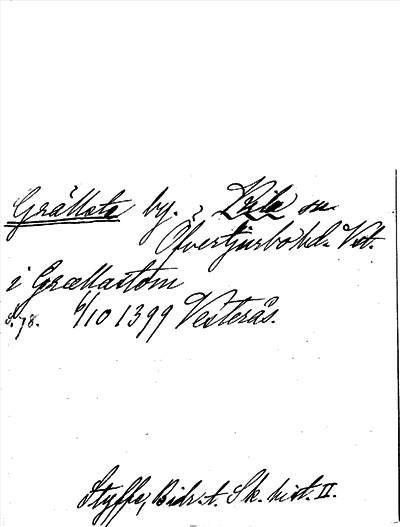 Grällsta by. i Kila sn
Öfvertjurbo hd. Vstl.
i Grællastom
s. 78. 6/10 1399 Vesterås.
Styffe, Bidr. t. Sk. hist. II.